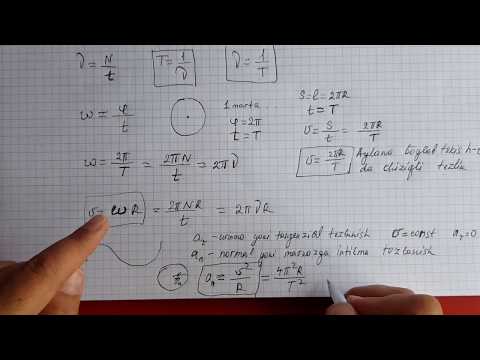 ν = N/t   T = 1/ν   ν = 1/T
ω = φ/t   1 marta...   φ = 2π   t = T
S = l = 2πR
t = T
υ = S/t = 2πR/T
ω = 2π/T = 2πN/t = 2πν
υ = 2πR/T   Aylana bo'ylab tekis
da chiziqli tezlik
υ = ωR = 2πNR/t = 2πνR
a_τ - yani tangenzial tezlanish   υ = const   a_τ = 0
a_n - normal yani markazga intilma tezlanish
a_n = υ²/R = 4π²R/T²